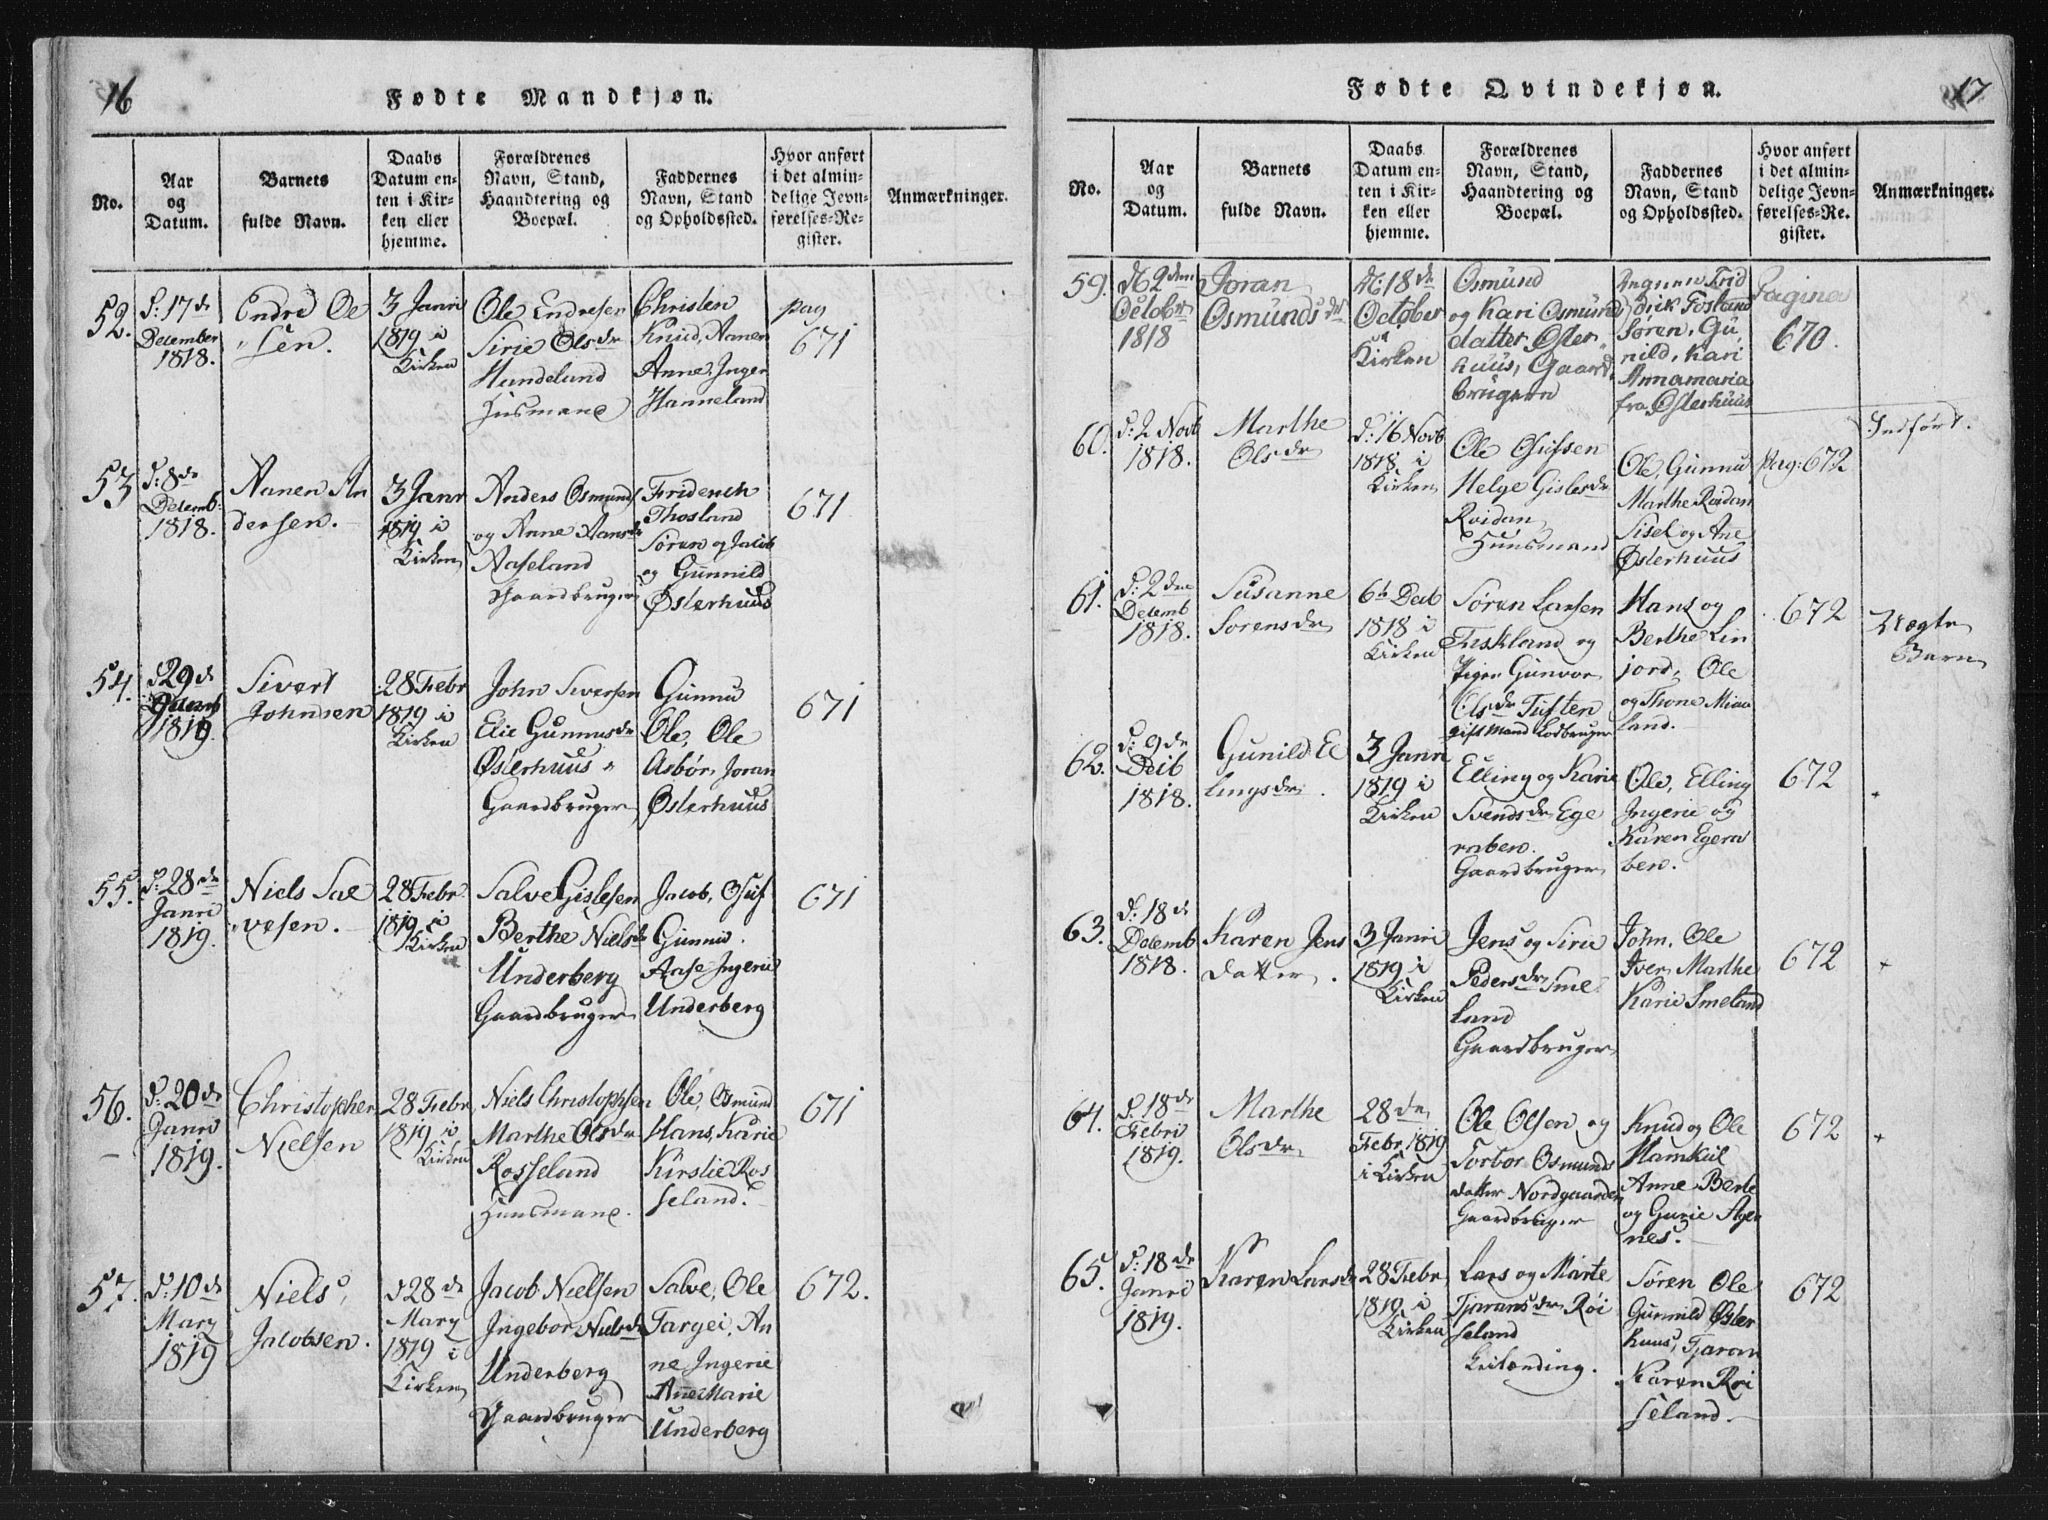 16
Fødte Mandkjøn.
No.
Aar
og
Datum.
Barnets
fulde Navn.
Daabs
Datum en-
ten i Kir-
ken eller
hjemme.
Forældrenes
Navn, Stand,
Haandtering og
Boepæl.
Faddernes
Navn, Stand
og Opholdssted.
Hvor anført
i det almin-
delige Jevn-
førelses-Re-
gister.
Anmærkninger.
52.
d: 17 de
December
1818.
Endre Ole
sen.
3 Janri
1819 i
Kirken
Ole Endresen
Sirie Olsdr
Hundelund
Husmand
Christen
Knud, Aanen
Anne, Inger
Hanneland
pag
671
53
d: 8 de
Decemb:
1818.
Aanen An
dersen.
3 Janr
1819 i
Kirken
Anders Osmunds
og Anne Aansdr
Aaseland
Gaardbruger
Friderich
Thosland
Søren og Jacob
og Gunnild
Østerhuus
671
54.
d 29 de
1819.
Sivert
Johnsen
28 Febr
1819 i
Kirken
John Siversen
Elie Gunnusdr
Østerhuus
Gaardbruger
Gunnu
Ole, Ole
Asbör, Joran
Østerhuus
671
55.
d: 28 de
Janri
1819.
Niels Sal
vesen.
28 Febr.
1819 i
Kirken
Salve Gislesen
Berthe Nielsdr
Underberg
Gaardbruger
Jacob, Osuf
Gunnu.
Aase Ingerie
Underberg
671
56.
d: 20 de
Janri
1819.
Christopher
Nielsen
28 Febr
1819 i
Kirken
Niels Christophsen
Marthe Olsdr
Rosseland
Huusmand.
Ole, Osmund
Hans, Karie
Kirstie Ros
seland.
671
57.
d: 10 de
Mary
1819
Niels
Jacobsen.
d 28 de
Mary
1819 i
Kirken
Jacob Nielsen
Ingebor Nielsdr
Underberg
Gaardbruger
Salve, Ole
Targei, An
ne Ingerie
Anne Marie
Underberg
672.
17
Fødte Qvindekjøn.
No.
Aar
og
Datum.
Barnets
fulde Navn.
Daabs
Datum en-
ten i Kir-
ken eller
hjemme.
Forældrenes
Navn, Stand,
Haandtering og
Boepæl.
Faddernes
Navn, Stand
og Opholdssted.
Hvor anført
i det almin-
delige Jevn-
førelses-Re-
gister.
Anmærkninger.
59.
2 den
October
1818
Joran
Osmundsdr
18 de
October
Kirken
Osmund
og Kari Osmund
datter Øster
huus, Gaard
brugern
Frid
rick Fosland
Søren, Gu
nild, Kari
Annamaria
fra Østerhuus
Pagina
670.
60.
d: 2 Novb
1818.
Marthe
Olsdr
d: 16 Novb
1818 i
Kirken
Ole Osufsen
Helge Gislesdr
Roidan
Huusmand
Ole, Gunnu
Marthe Roidan
Sisel og Ane
Østerhuus
Pag: 672
Indført.
61.
d: 2 den
Decemb
1818.
Susanne
Sorensdr
6te Decb
1818 i
Kirken
Søren Larsen
Fiskland og
Pigen Gunvor
Olsdr Tuften
gift Mand Lodbruger
Hans og
Berthe Lin
jord, Ole
og Thone Mia
land.
672
Uægte
Barn
62.
d: 9 de
Decb
1818.
Gunild El
lingsdr.
3 Janr
1819 i
Kirken
Elling og Karie
Svendsdr Ege
raben.
Gaardbruger
Ole, Elling
Ingerie og
Karen Egera
ben.
672
63.
d: 18 de
Decemb
1818.
Karen Jens
datter.
3 Janri
1819 i
Kirken
Jens og Sirie
Pedersdr Sme
land
Gaardbruger
John, Ole
Iver, Marthe
Karie Smeland
672
64.
d. 18 de
Febri
1819.
Marthe
Olsdr
28 de
Febr 1819
i Kirken
Ole Olsen og
Torbor Osmunds
datter Nordgaarden
Gaardbruger
Knud og Ole
Hamkiil
Anne Berte
og Gurie Ager
nes.
672
65.
d: 18 de
Janri
1819.
Karen Larsdr
28 Febr
1819 i
Kirken
Lars og Marte
Tjaransdr Röi
seland
Leilænding.
Søren Ole
Gunnild Øster
huus, Tjaran
Karen Röi
seland.
672